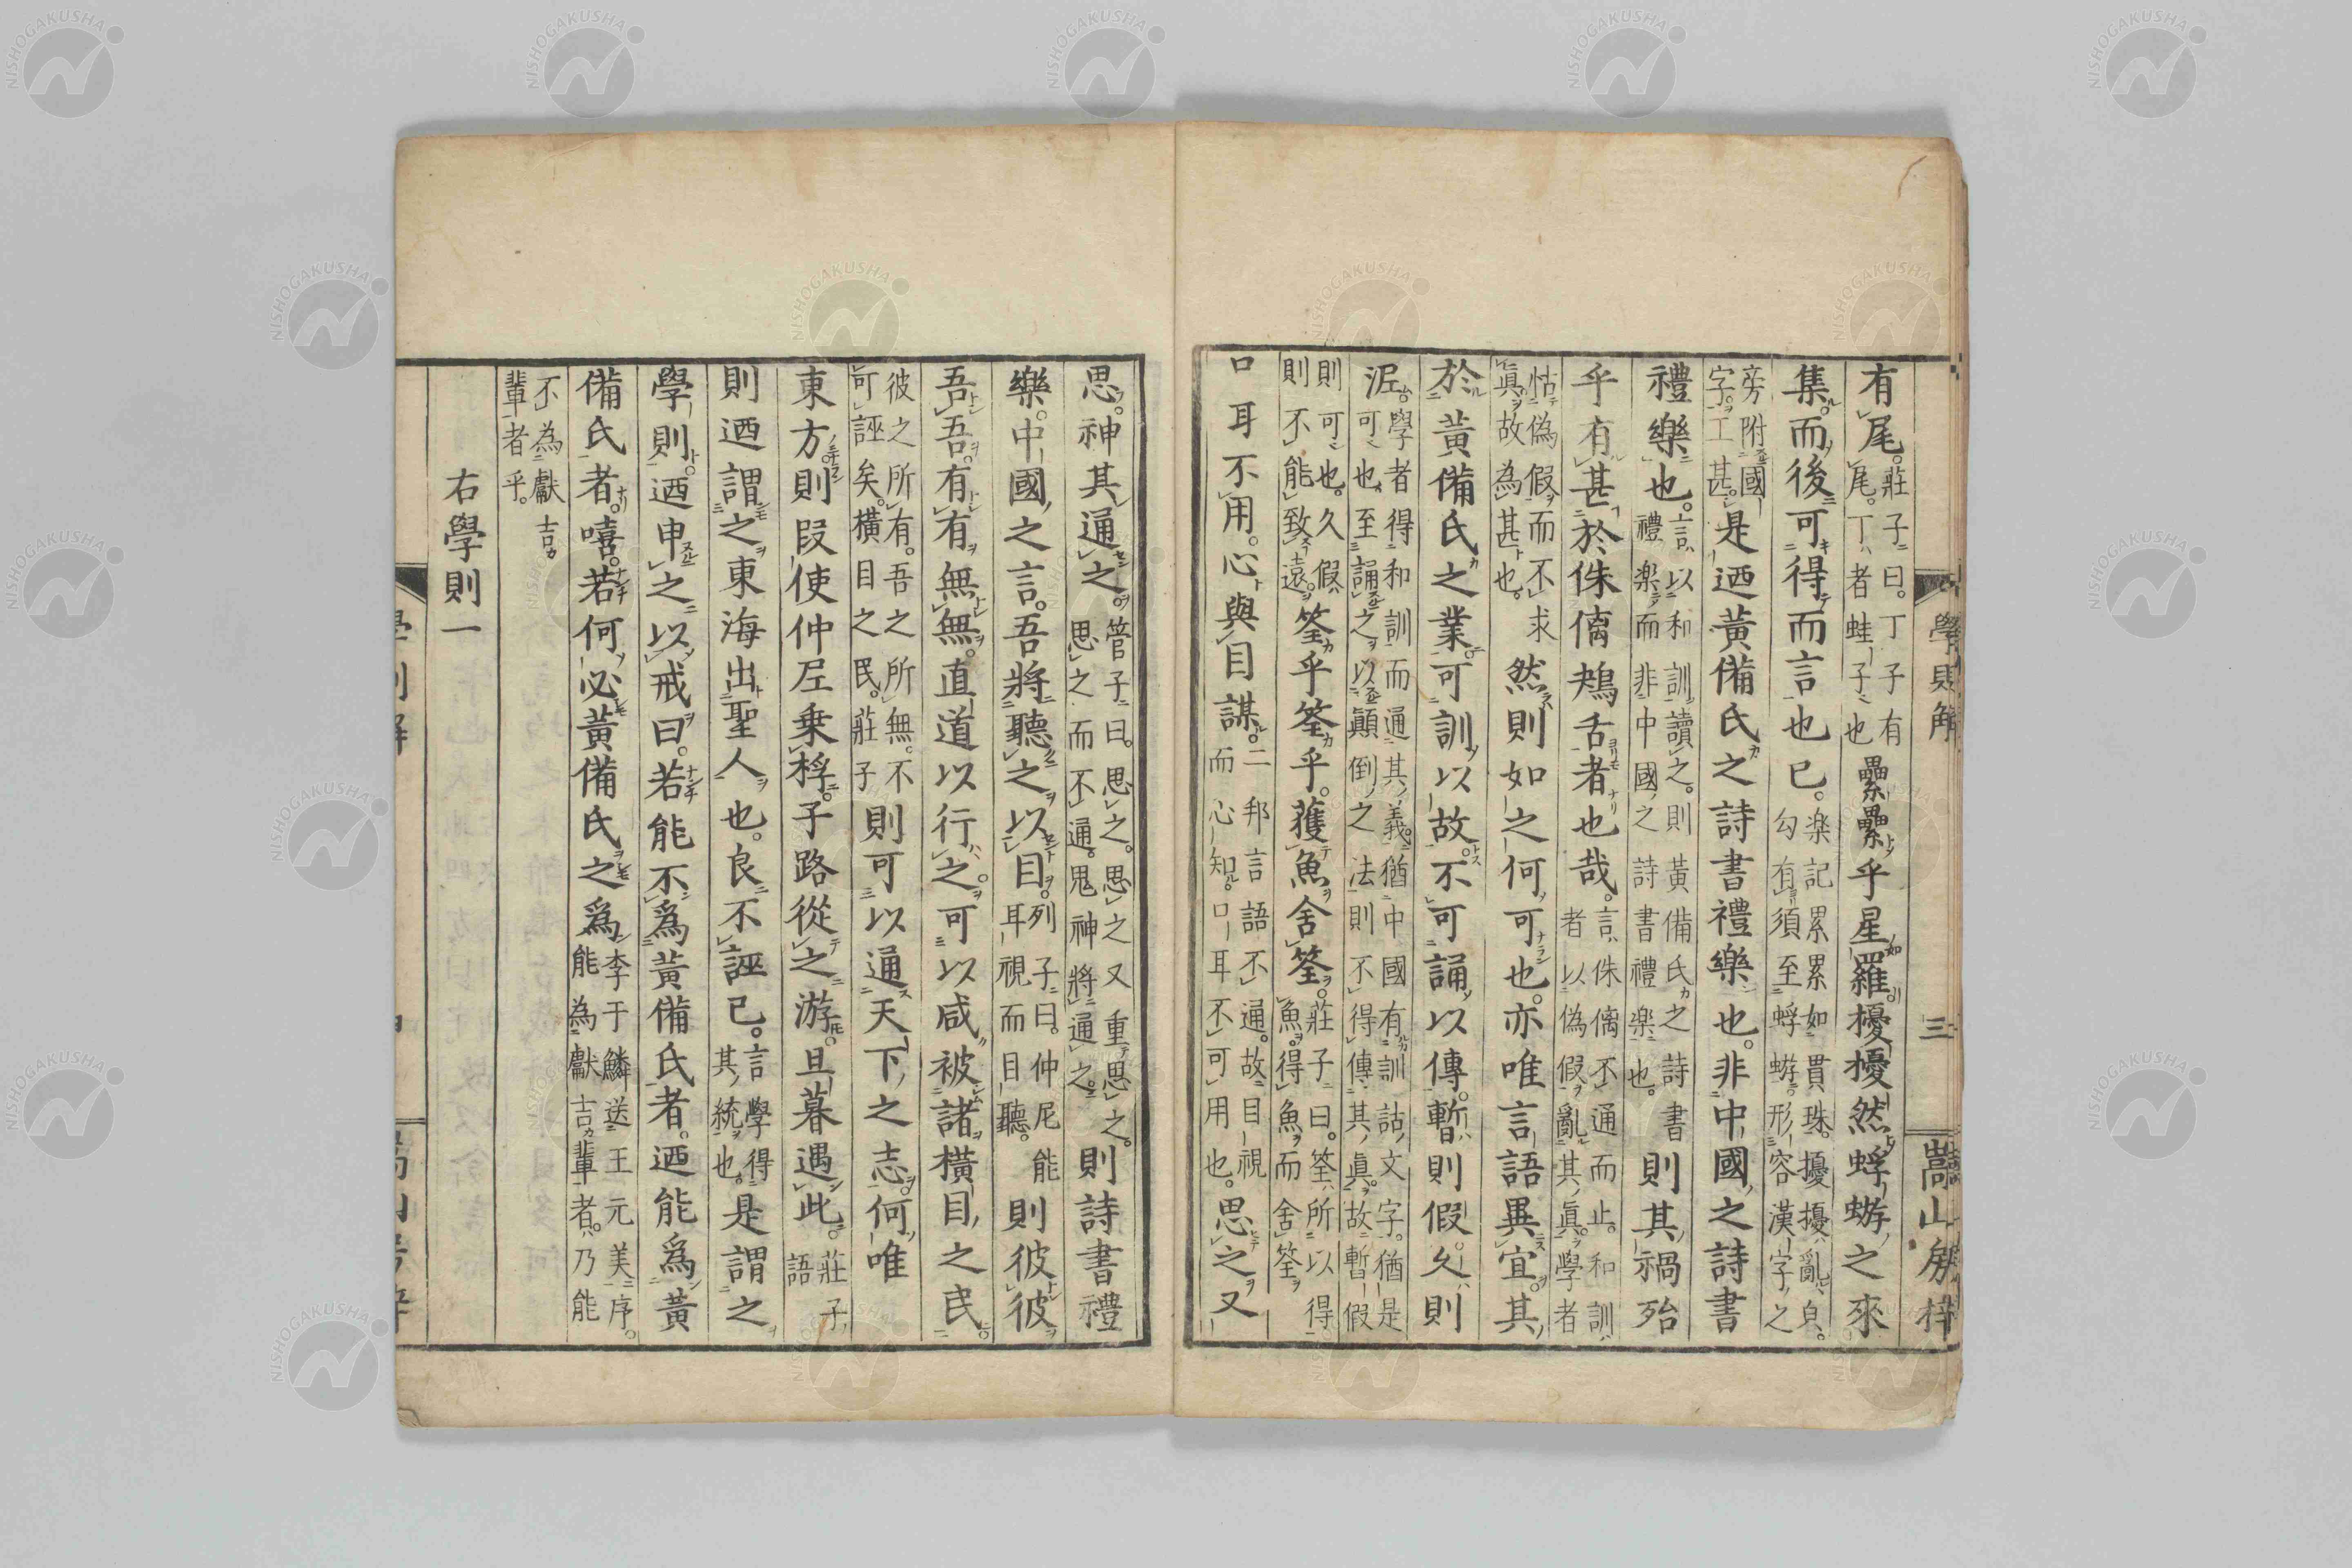 學則解 三 嵩山房梓
有尾。莊子曰。丁子有尾。丁者蛙子也纍纍乎星羅擾擾然蜉蝣之來
集。而後可得而言也已。楽記累累如貫珠。擾擾亂皃。勾有須至蜉蝣。形容漢字之
旁附國字。工甚。是迺黃備氏之詩書禮樂也。非中國之詩書
禮樂也。言以和訓讀之。則黃備氏之詩書禮楽而非中國之詩書禮楽也。則其禍殆
乎有甚於侏𠌯鴂舌者也哉。言侏𠌯不通而止。和訓者以偽假亂其眞。學者
怙偽假而不求眞。故為甚也。然則如之何可也。亦唯言語異宜。其
於黃備氏之業可訓以故。不可誦以傳。暫則假。久則
泥。學者得和訓而通其義。猶中國有訓詁文字。猶是可也。至誦之以顚倒之法則不得傳其眞。故暫假
則可也。久假則不能致遠。筌乎筌乎。獲魚舍筌。莊子曰。筌所以得魚。得魚而舍筌
口耳不用。心與目謀。二邦言語不通。故目視而心知。口耳不可用也。思之又
思。神其通之。管子曰。思之。思之又重思之。思之而不通。鬼神將通之。則詩書禮
樂。中國之言。吾將聽之以目。列子曰。仲尼能耳視而目聽。則彼彼
吾吾。有有無無。直道以行之。可以咸被諸橫目之民。
彼之所有。吾之所無。不可誣矣。橫目之民。莊子則可以通天下之志。何唯
東方。則叚使仲尼乗桴。子路從之游。旦暮遇此。莊子語
則迺謂之東海出聖人也。良不誣已。言學得其統也。是謂之
學則。迺申之以戒曰。若能不爲黃備氏者。迺能爲黃
備氏者。嘻。若何必黃備氏之爲李于鱗送王元美序。能為獻吉輩者。乃能
不為獻吉輩者乎。
右學則一